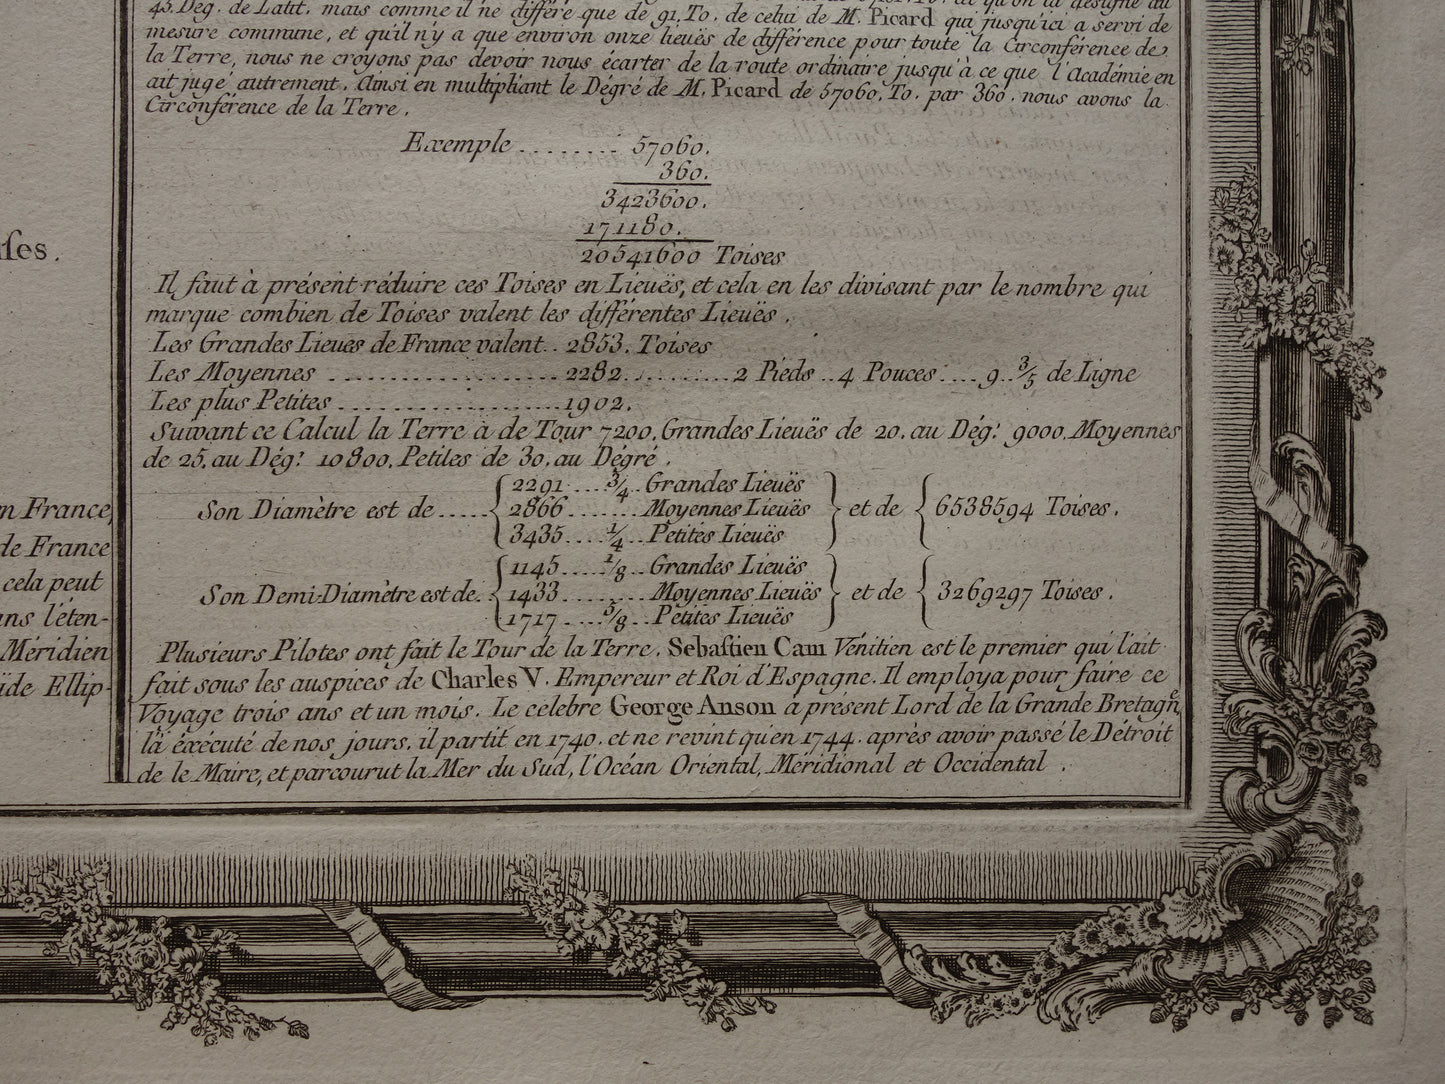 45. Dég. de Latit. mais comme il ne différe que de 91. To. de celui de M. Picard qui jusqu'ici a servi de
mesure commune, et qu'il n'y a que environ onze lieuës de différence pour toute la Circonférence de
la Terre, nous ne croyons pas devoir nous écarter de la route ordinaire jusqu'à ce que l'Académie en
ait jugé autrement. Ainsi en multipliant le Dégré de M. Picard de 57060. To. par 360. nous avons la
Circonférence de la Terre.
Exemple ........ 57060.
360.
3423600.
171180.
20541600 Toises
Il faut à présent réduire ces Toises en Lieuës, et cela en les divisant par le nombre qui
marque combien de Toises valent les différentes Lieuës.
Les Grandes Lieues de France valent .. 2853. Toises
Les Moyennes .................... 2282 .......... 2 Pieds .. 4 Pouces .... 9 .. 3/5 de Ligne
Les plus Petites .................... 1902.
Suivant ce Calcul la Terre a de Tour 7200. Grandes Lieuës de 20. au Dég. 9000. Moyennes
de 25. au Dég. 10800. Petites de 30. au Dégré.
Son Diamètre est de .....
2291 .... 3/4 .. Grandes Lieuës
2866 ........ Moyennes Lieuës
3435 .... 1/4 .. Petites Lieuës
et de 6538594 Toises.
Son Demi-Diamètre est de.
1145 .... 1/8 .. Grandes Lieuës
1433 ........ Moyennes Lieuës
1717 .... 5/8 .. Petites Lieuës
et de 3269297 Toises.
Plusieurs Pilotes ont fait le Tour de la Terre. Sebastien Cam Vénitien est le premier qui l'ait
fait sous les auspices de Charles V. Empereur et Roi d'Espagne. Il employa pour faire ce
Voyage trois ans et un mois. Le celebre George Anson a présent Lord de la Grande Bretagne
l'a éxécuté de nos jours. il partit en 1740. et ne revint qu'en 1744. après avoir passé le Détroit
de le Maire, et parcourut la Mer du Sud, l'Océan Oriental, Méridional et Occidental.
ſes.
n France,
de France
cela peut
ns l'éten-
Méridien
ide Ellip-